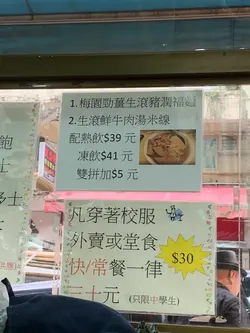 1. 梅園勁薑生滾豬潤福
2. 生滾鮮牛肉湯米線
配熱飲$39 元
凍飲$41 元
雙拼加$5 元
凡穿著校服
外賣或堂食
快/常餐一律
三十元 (只限中學生)
$30
飽
士
多士